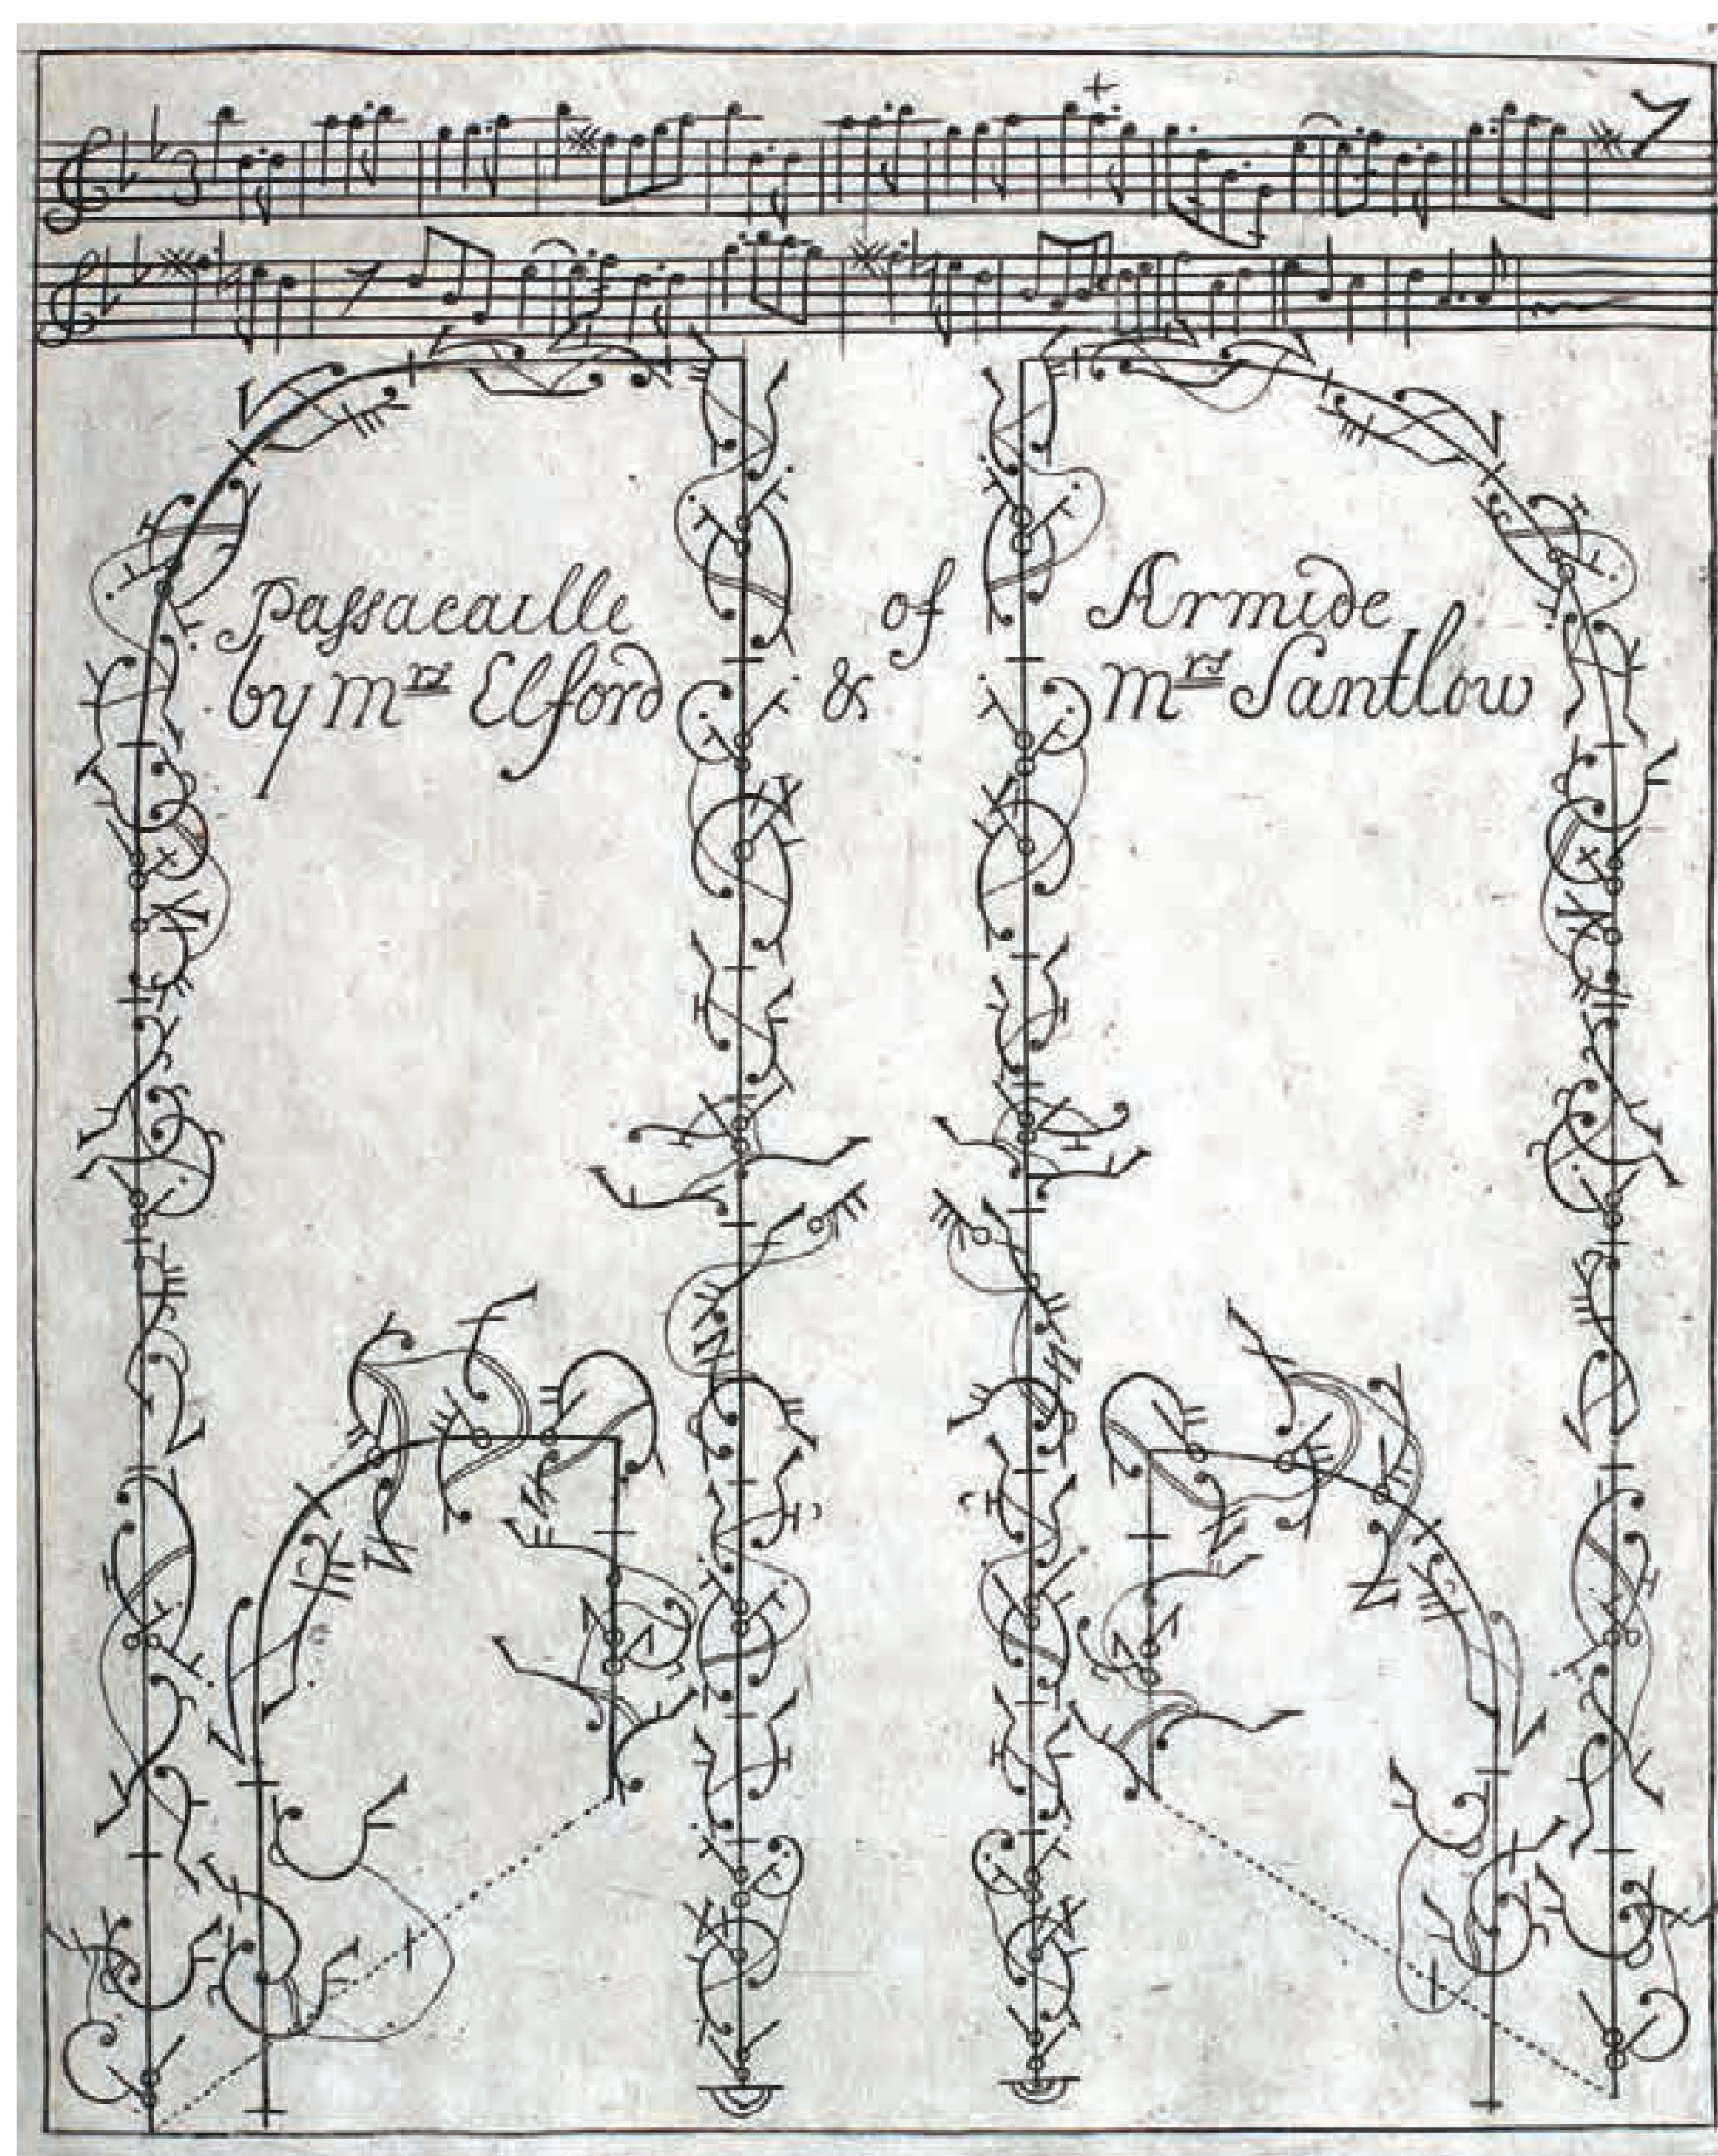 Passacaille of Armide
by mrs Elford & mrs Santlow